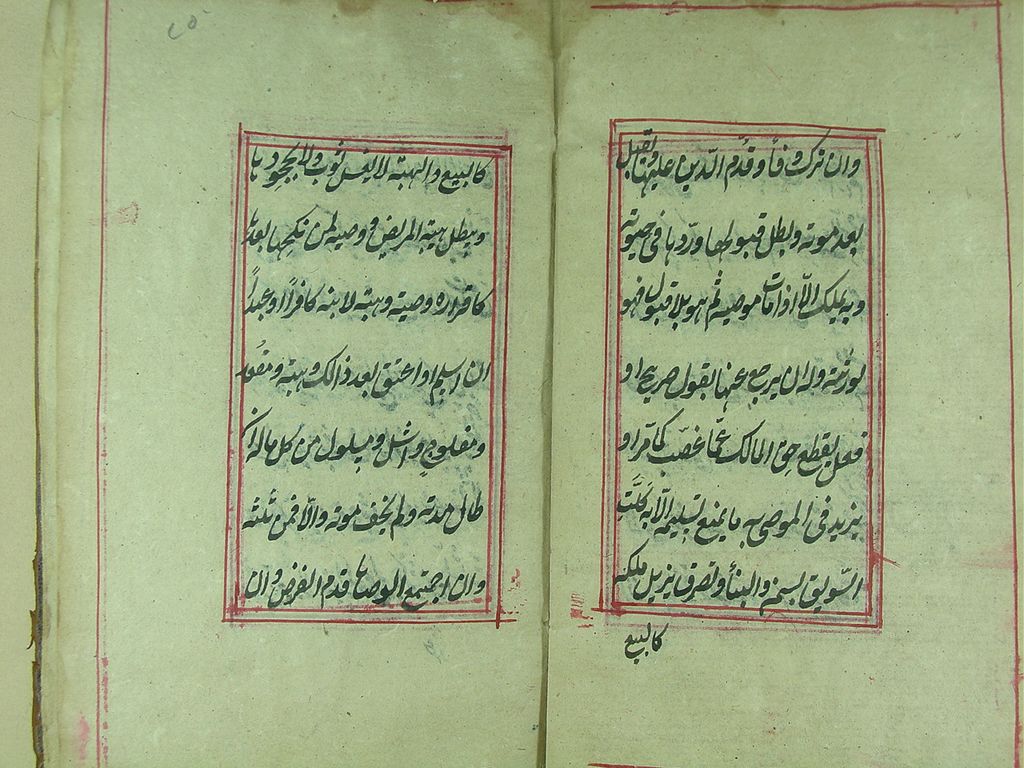 وان ترك وفاً وقُدم الدّين عليها وتقبل
بعد موته وبطل قبولها وردّها فى حيوته
وبه يملك الّا اذا مات موصيه ثم هو بلا قبول فهو
لورثته وله ان يرجع عنها بقول صريح او
فعل يقطع حق المالك عمّا غصب كما مرّ او
يزيد فى الموصى به ما يمنع تسليمه الّا به كلَتِّ
السّويق بسمن والبنأ وتصرف يزيل ملكه
كالبيع
كالبيع والهبة لا بغسل ثوب ولا بجحودها
وتبطل هبة المريض ووصيه لمن نكحها بعدها
كاقراره وصيته وهبته لابنه كافراً او عبداً
ان اسلم او اعتق بعد ذالك وهبته ومقعد
ومفلوجٍ واشل ومسلول من كل ماله ان
طال مدته ولم يخف موته والّا فمن ثلثه
وان اجتمع الوصايا قدم الفرض وان
٢٥